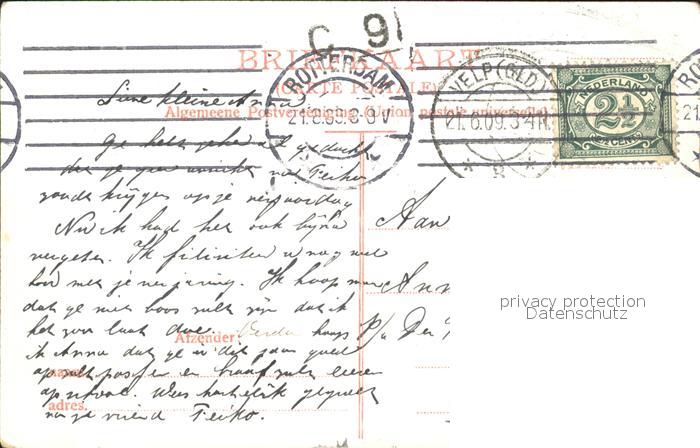 C 9
BRIEFKAART
CARTE POSTALE
Algemeene Postvereeniging (Union postale universelle)
ROTTERDAM
21.6.09. 8-9 V
VELP (GLD.)
21.6.09. 3-4 N.
8
NEDERLAND
2½
CENT
Lieve kleine Anna
Ge hebt zeker al gedacht
dat je geen van Feiko
zoude krijgen op je verjaardag
Nu ik had het ook bijna
vergeten. Ik feliciteer u nog wel
met je verjaring. Ik hoop maar
dat ge niet boos zult zijn dat ik
het zoo laat doe. Verder hoop
ik Anna dat ge in dit jaar goed
op zult passen en braaf zult leeren
op school. Wees hartelijk gegroet
van je vriend Feiko.
Afzender:
naam
adres.
Aan
Ann
P/a Den
privacy protection
Datenschutz